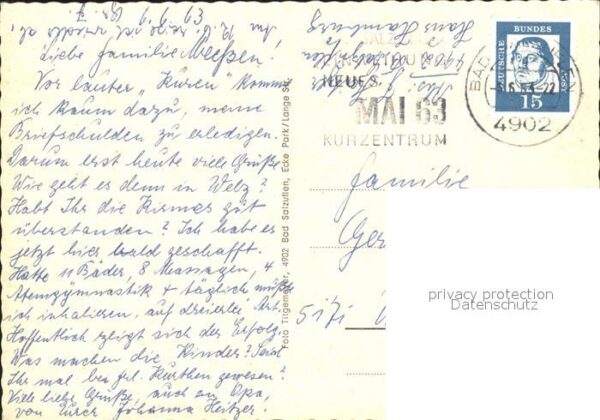 6/6/63
Liebe Familie Meeßen.
Vor lauter "Kuren" komme
ich kaum dazu, meine
Briefschulden zu erledigen.
Darum erst heute viele Grüße
Wie geht es denn in Welz?
Habt Ihr die Kirmes gut
überstanden? Ich habe es
jetzt hier bald geschafft.
Hatte 11 Bäder, 8 Massagen, 4
Atemgymnastik + täglich mußte
ich inhalieren, auf dreierlei Art.
Hoffentlich zeigt sich der Erfolg.
Was machen die Kinder? Seid
Ihr mal bei Frl. Kürthen gewesen?
Viele liebe Grüße, auch an Opa,
von Eurer Johanna
Foto Tilgemeier, 4902 Bad Salzuflen, Ecke Park/Lange Str.
Hans Hamburg
4902
NEUES
MAI 63
KURZENTRUM
DEUTSCHE
BUNDES
POST
15
BAD
4902
Familie
Ger
5171
privacy protection
Datenschutz